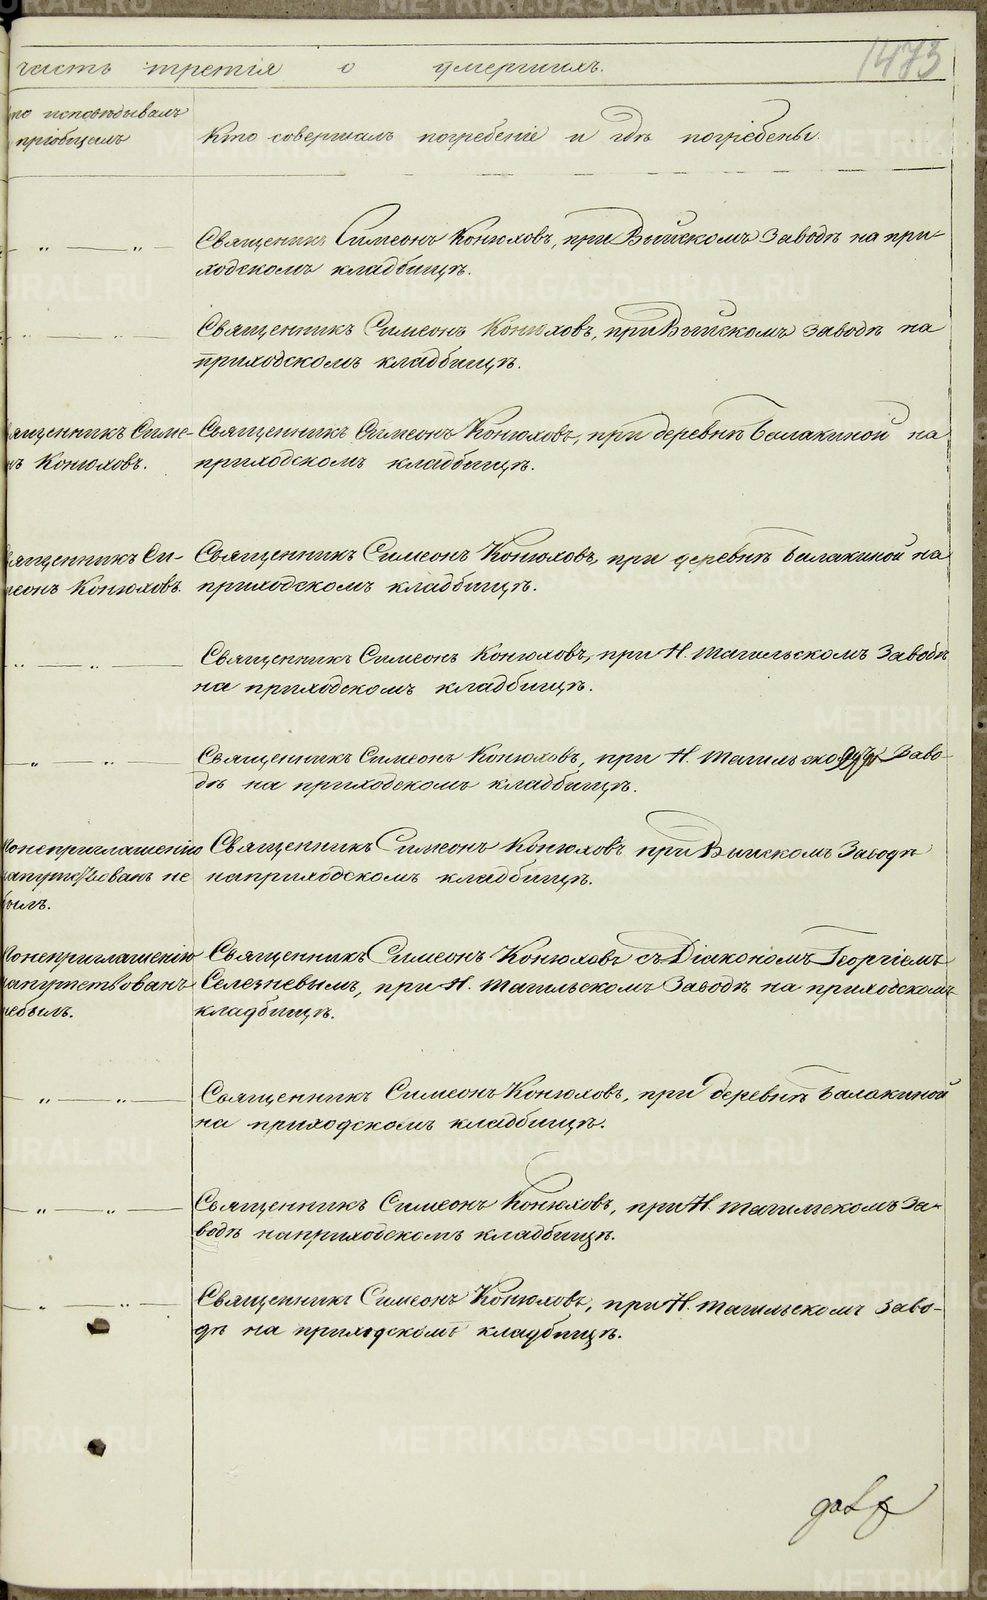 часть третія о умершихъ.
1473
то исповѣдывалъ
пріобщалъ
Кто совершалъ погребеніе и гдѣ погребены.
„ „
Священникъ Симеонъ Конюховъ, при Выйскомъ Заводѣ на при-
ходскомъ кладбищѣ.
Священникъ Симеонъ Конюховъ, при Выйскомъ заводѣ на
приходскомъ кладбищѣ.
вященникъ Симе-
нъ Конюховъ.
Священникъ Симеонъ Конюховъ, при деревнѣ Балакиной на
приходскомъ кладбищѣ.
вященникъ Си-
меонъ Конюховъ.
Священникъ Симеонъ Конюховъ, при деревнѣ Балакиной на
приходскомъ кладбищѣ.
„ „
Священникъ Симеонъ Конюховъ, при Н. Тагильскомъ Заводѣ
на приходскомъ кладбищѣ.
„ „
Священникъ Симеонъ Конюховъ, при Н. Тагильско Заво-
дѣ на приходскомъ кладбищѣ.
По неприглашенію
напутствованъ не
былъ.
Священникъ Симеонъ Конюховъ при Выйскомъ Заводѣ
на приходскомъ кладбищѣ.
По неприглашенію
напутствованъ
небылъ.
Священникъ Симеонъ Конюховъ съ Діакономъ Георгіемъ
Селезневымъ, при Н. Тагильскомъ Заводѣ на приходскомъ
кладбищѣ.
„ „
Священникъ Симеонъ Конюховъ, при деревнѣ Балакиной
на приходскомъ кладбищѣ.
„ „
Священникъ Симеонъ Конюховъ, при Н. Тагильскомъ За-
водѣ на приходскомъ кладбищѣ.
„ „
Священникъ Симеонъ Конюховъ, при Н. Тагильскомъ Заво-
дѣ на приходскомъ кладбищѣ.
METRIKI.GASO-URAL.RU